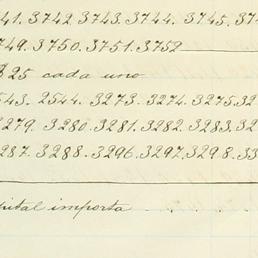 41. 3742 3743. 3744. 3745. 37
749. 3750. 3751. 3752
$25 cada uno
543. 2544. 3273. 3274. 3275. 32
3279. 3280. 3281. 3282. 3283. 32
3287. 3288. 3296. 3297. 3298. 33
pital importa . . . .